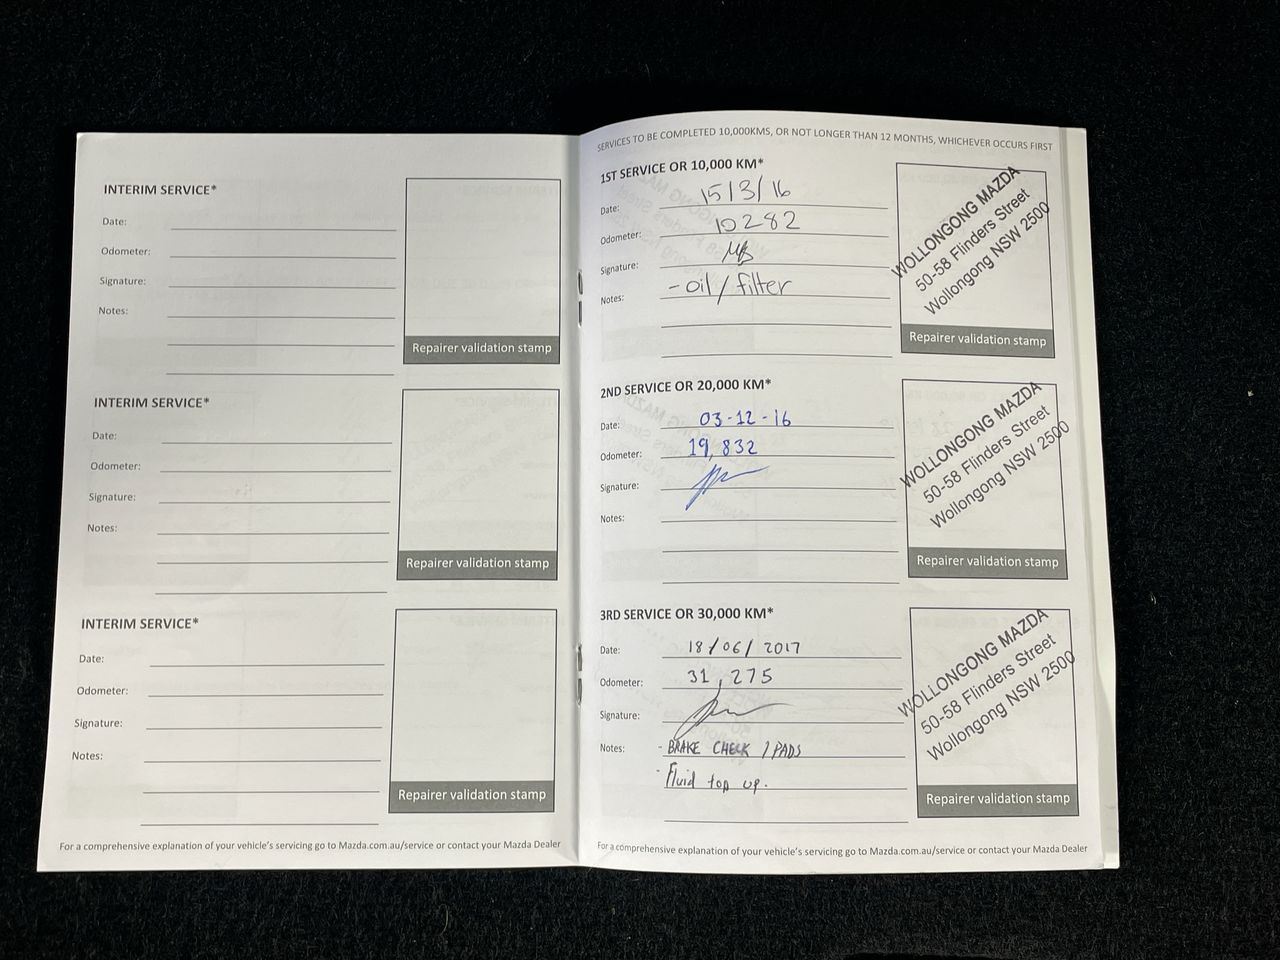 INTERIM SERVICE*
Date:
Odometer:
Signature:
Notes:
Repairer validation stamp
INTERIM SERVICE*
Date:
Odometer:
Signature:
Notes:
Repairer validation stamp
INTERIM SERVICE*
Date:
Odometer:
Signature:
Notes:
Repairer validation stamp
For a comprehensive explanation of your vehicle's servicing go to Mazda.com.au/service or contact your Mazda Dealer
SERVICES TO BE COMPLETED 10,000KMS, OR NOT LONGER THAN 12 MONTHS, WHICHEVER OCCURS FIRST
1ST SERVICE OR 10,000 KM*
Date: 15/3/16
Odometer: 10282
Signature:
Notes: - oil / filter
WOLLONGONG MAZDA
50-58 Flinders Street
Wollongong NSW 2500
Repairer validation stamp
2ND SERVICE OR 20,000 KM*
Date: 03-12-16
Odometer: 19,832
Signature:
Notes:
WOLLONGONG MAZDA
50-58 Flinders Street
Wollongong NSW 2500
Repairer validation stamp
3RD SERVICE OR 30,000 KM*
Date: 18/06/2017
Odometer: 31,275
Signature:
Notes: - BRAKE CHECK / PADS
- Fluid top up.
WOLLONGONG MAZDA
50-58 Flinders Street
Wollongong NSW 2500
Repairer validation stamp
For a comprehensive explanation of your vehicle's servicing go to Mazda.com.au/service or contact your Mazda Dealer